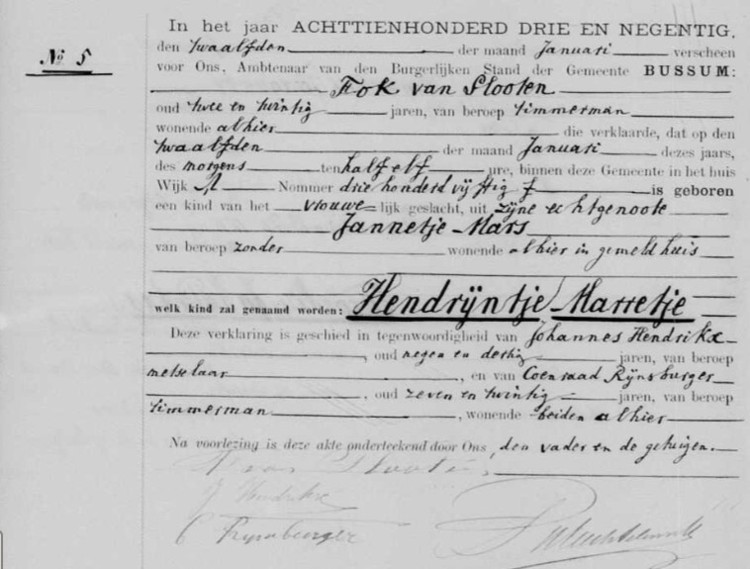 In het jaar ACHTTIENHONDERD DRIE EN NEGENTIG,
No 5
den twaalfden der maand Januari verscheen
voor Ons, Ambtenaar van den Burgerlijken Stand der Gemeente BUSSUM:
Fok van Slooten
oud twee en twintig jaren, van beroep timmerman
wonende alhier die verklaarde, dat op den
twaalfden der maand Januari dezes jaars,
des morgens ten half elf ure, binnen deze Gemeente in het huis
Wijk A Nommer drie honderd vijftig f is geboren
een kind van het vrouwe=lijk geslacht, uit zijne echtgenoote
Jannetje Mars
van beroep zonder wonende alhier in gemeld huis
welk kind zal genaamd worden: Hendrijntje Marretje
Deze verklaring is geschied in tegenwoordigheid van Johannes Hendrikx
, oud negen en dertig jaren, van beroep
metselaar, en van Coenraad Rijnsburger
, oud zeven en twintig jaren, van beroep
timmerman, wonende beiden alhier
Na voorlezing is deze akte onderteekend door Ons, den vader en de getuigen.
van Slooten
J Hendrikx
C Rijnsburger